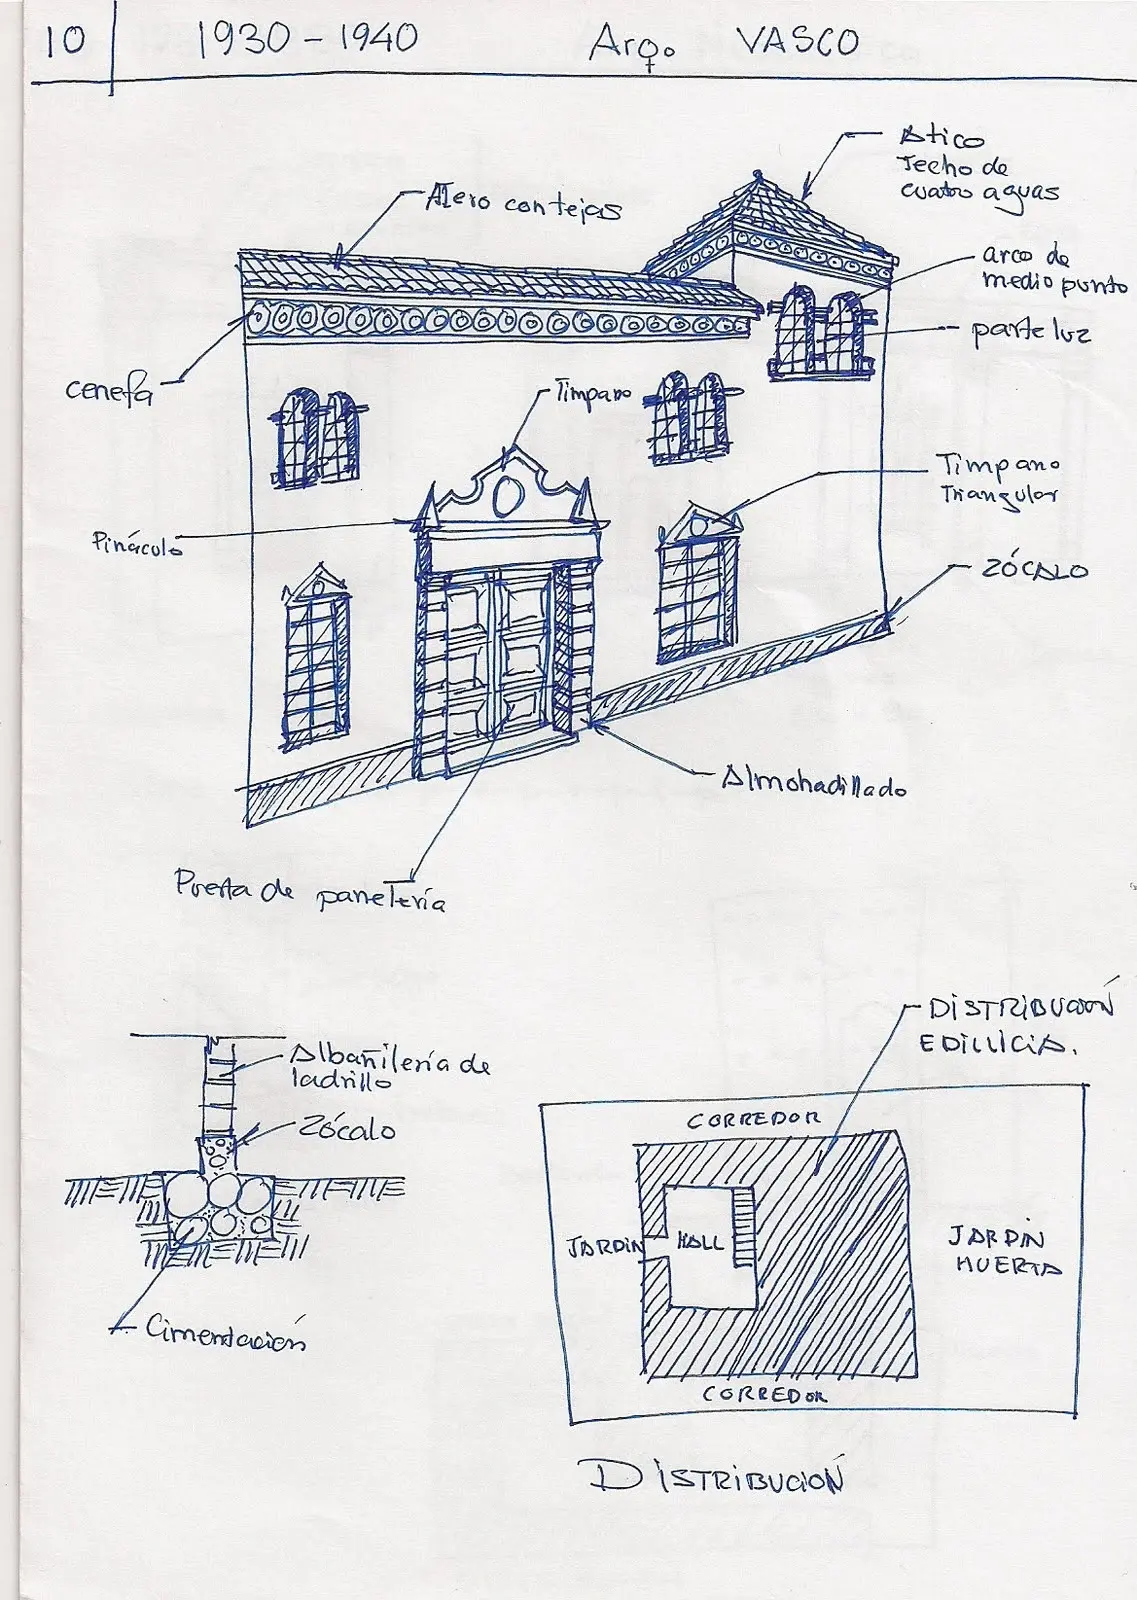 10
1930-1940
Arq. VASCO
Atico
Techo de
cuatro aguas
Alero con tejas
arco de
medio punto
parteluz
cenefa
Timpano
Timpano
Triangular
Pináculo
ZÓCALO
Almohadillado
Puerta de panetería
Albañilería de
ladrillo
Zócalo
Cimentación
DISTRIBUCIÓN
EDILLICIA.
CORREDOR
JARDIN
HALL
JARDIN
HUERTA
CORREDOR
DISTRIBUCIÓN